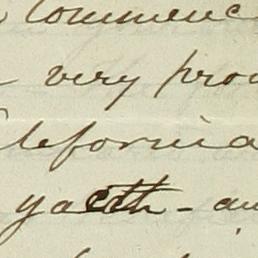 commenc
very prou
lifornia
yacht - an